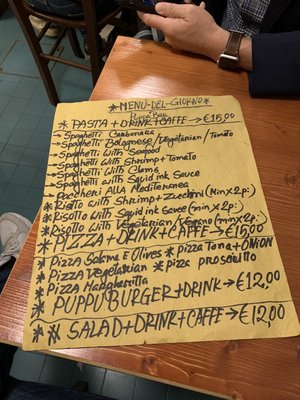 *MENU-DEL-GIORNO*
Puppu Bar
* PASTA + DRINK + CAFFE → €15,00
→ Spaghetti Carbonara
→ Spaghetti Bolognese/Vegetarian/Tomato
→ Spaghetti with Seafood
→ Spaghetti with Shrimp + Tomato
→ Spaghetti with Clams
→ Spaghetti with Squid ink Sauce
→ Paccheri Alla Mediterranea
* Risotto with Shrimp + Zucchini (Min x 2p.)
* Risotto with Squid ink Sauce (min x 2p.)
* Risotto with Vegetarian (min x 2p.)
* PIZZA + DRINK + CAFFE → €15,00
* Pizza Salame E Olives * Pizza Tona + ONION
* Pizza Vegetarian * Pizza prosciutto
* Pizza Margherita
* PUPPU BURGER + DRINK → €12,00
* * SALAD + DRINK + CAFFE → €12,00